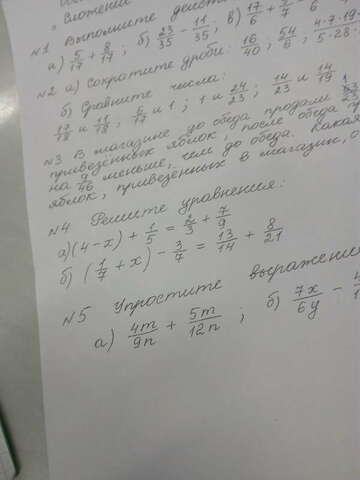 Сложение
№1 Выполните действ
а) 5/17 + 8/17; б) 23/35 − 11/35; в) 17/6 +
№2 а) Сократите дроби: 16/40; 54/6; 4·7·19
б) Сравните числа:
17/18 и 11/18; 5/17 и 1; 1 и 24/23; 14/23 и 14/19
№3 В магазине до обеда продали
привезённых яблок, после обеда
на 9/46 меньше, чем до обеда. Какая
яблок, привезённых в магазин,
№4 Решите уравнения:
а) (4 − x) + 1/5 = 2/3 + 7/9
б) (1/7 + x) − 3/7 = 13/14 + 8/21
№5 Упростите выражени
а) 4m/9n + 5m/12n; б) 7x/6y −